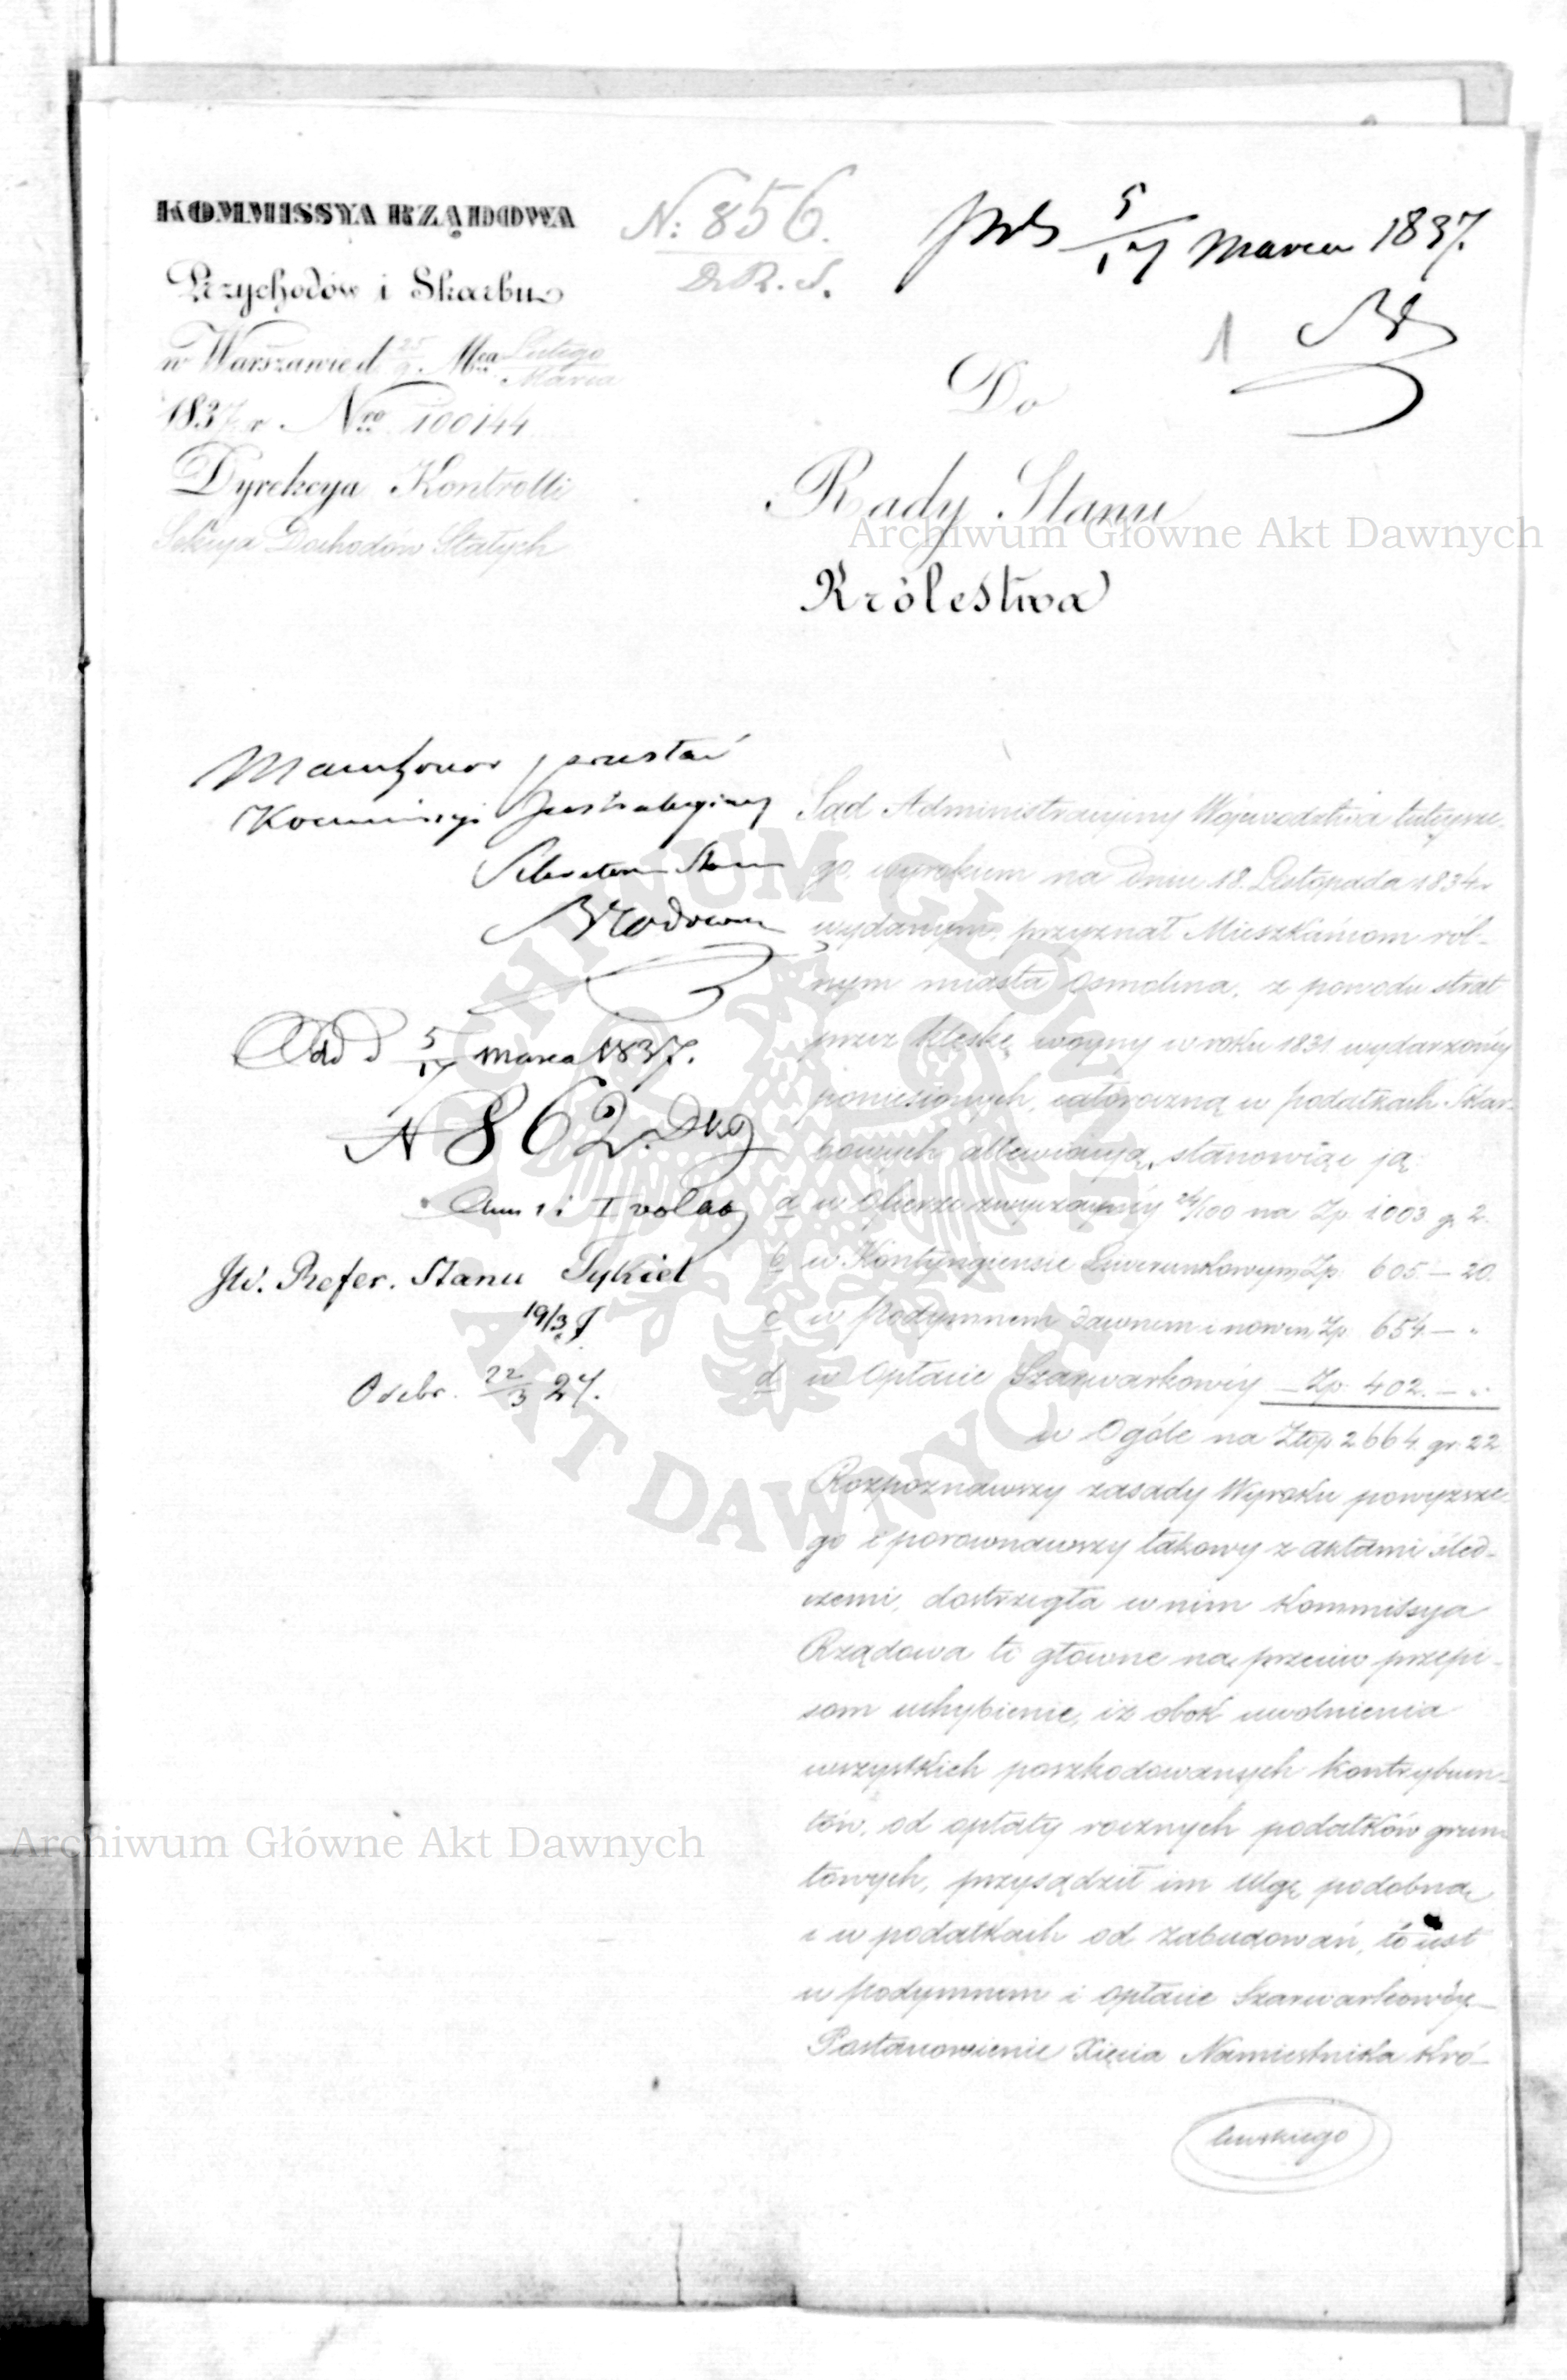 KOMMISSYA RZĄDOWA
Przychodów i Skarbu
w Warszawie d 25/9 Mca Lutego/Marca
1837 r. Nro 100144
Dyrekcya Kontrolli
Sekcya Dochodów Stałych
N: 856.
D.R.S.
5/17 Marca 1837.
1
Do
Rady Stanu
Królestwa
przesłać
Kommissyi
Sekretarz Stanu
5/17 Marca 1837.
N 862.
JW. Refer. Stanu Tykiel
19/3
Odebr. 22/3 27.
Sąd Administracyjny Województwa tuteysze-
go, wyrokiem na dniu 18. Listopada 1834 r
wydanym, przyznał Mieszkańcom rol-
nym miasta Osmolina, z powodu strat
przez klęskę woyny w roku 1831 wydarzoney
poniesionych, całoroczną w podatkach Skar-
bowych allewiacyą, stanowiąc ją:
a w Ofierze zwyczayney 24/100 na Zp. 1003 gr 2.
b w Kontyngiensie Liwerunkowym Zp. 605.—20.
c w Podymnem dawnem i nowem Zp. 654.— "
d w Opłacie Szarwarkowey — Zp. 402.— "
w Ogóle na Złop 2664 gr. 22
Rozpoznawszy zasady Wyroku powyższe-
go i porownawszy takowy z aktami śled-
czemi, dostrzegła w nim Kommissya
Rządowa te głowne na przeciw przepi-
som uchybienie, iż obok uwolnienia
wszystkich poszkodowanych kontrybuen-
tów, od opłaty rocznych podatków grun-
towych, przysądził im ulgę podobną
i w podatkach od zabudowań, to iest
w podymnem i opłacie Szarwarkowéy.—
Postanowienie Xięcia Namiestnika Kró-
lewskiego
Archiwum Główne Akt Dawnych
Archiwum Główne Akt Dawnych
ARCHIWUM GŁÓWNE AKT DAWNYCH